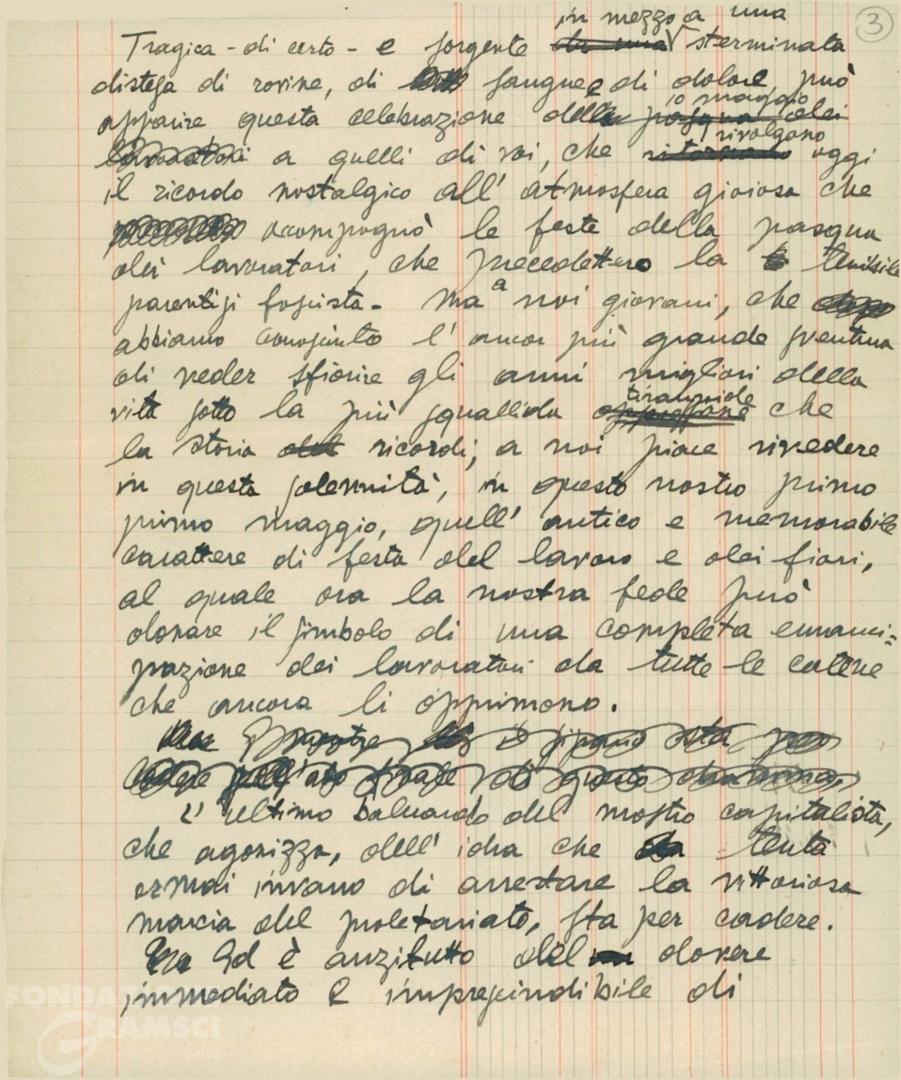 3
in mezzo a una
Tragica - di certo - e sorgente di una sterminata
distesa di rovine, di sangue e di dolore può
1o maggio
apparire questa celebrazione della pasqua dei
rivolgono
lavoratori a quelli di voi, che ritornano oggi
il ricordo nostalgico all'atmosfera gioiosa che
accompagnò le feste della pasqua
dei lavoratori, che precedettero la terribile
parentesi fascista. Ma a noi giovani, che
abbiamo conosciuto l'ancor più grande sventura
di veder sfiorire gli anni migliori della
tirannide
vita sotto la più squallida oppressione che
la storia ricordi; a noi piace rivedere
in questa solennità, in questo nostro primo
primo maggio, quell'antico e memorabile
carattere di festa del lavoro e dei fiori,
al quale ora la nostra fede può
donare il simbolo di una completa emanci=
pazione dei lavoratori da tutte le catene
che ancora li opprimono.
il sipario sta per
di questo
L'ultimo baluardo del mostro capitalista,
che agonizza, dell'idra che tenta
ormai invano di arrestare la vittoriosa
marcia del proletariato, sta per cadere.
Ed è anzitutto del dovere
immediato e imprescindibile di
FONDAZIONE
GRAMSCI
onlus